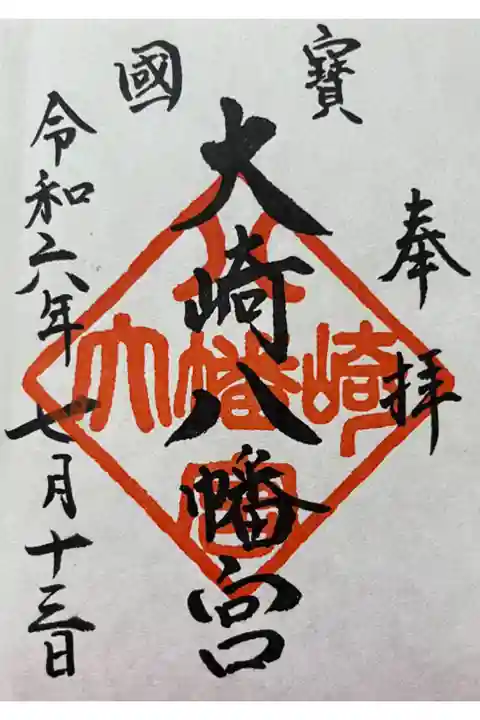 寶國
奉拝
大崎八幡宮
令和六年七月十三日
八
大幡崎
宮